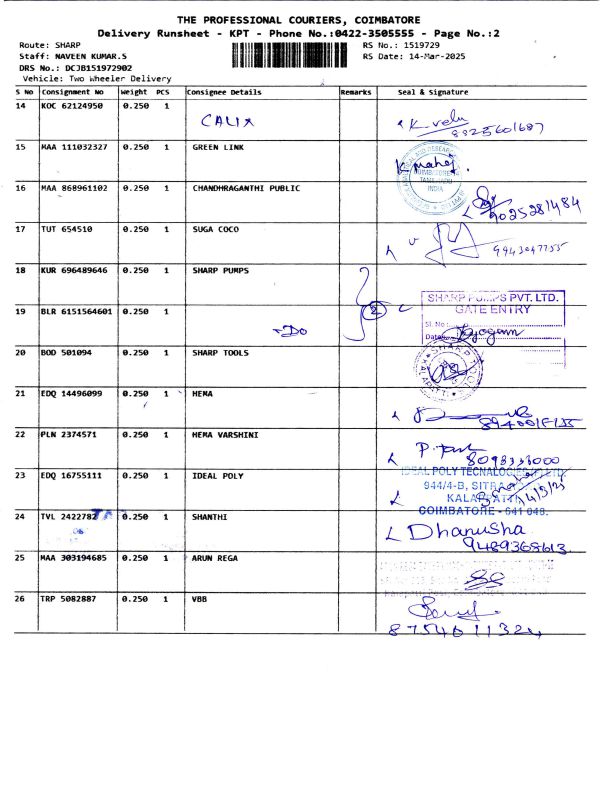 THE PROFESSIONAL COURIERS, COIMBATORE
Delivery Runsheet - KPT - Phone No.:0422-3505555 - Page No.:2
Route: SHARP
RS No.: 1519729
Staff: NAVEEN KUMAR.S
RS Date: 14-Mar-2025
DRS No.: DCJB151972902
Vehicle: Two Wheeler Delivery
S No Consignment No Weight PCS Consignee Details Remarks Seal & Signature
14 KOC 62124950 0.250 1
CALIX K. velu
8825601687
15 MAA 111032327 0.250 1 GREEN LINK
COIMBATORE
TAMILNADU
INDIA
16 MAA 868961102 0.250 1 CHANDHRAGANTHI PUBLIC
9025281484
17 TUT 654510 0.250 1 SUGA COCO
9943047755
18 KUR 696489646 0.250 1 SHARP PUMPS
SHARP PUMPS PVT. LTD.
19 BLR 6151564601 0.250 1 2 GATE ENTRY
Sl. No:
-Do
Date
20 BOD 501094 0.250 1 SHARP TOOLS
21 EDQ 14496099 0.250 1 HEMA
22 PLN 2374571 0.250 1 HEMA VARSHINI
8098333000
23 EDQ 16755111 0.250 1 IDEAL POLY
IDEAL POLY
944/4-B, SITRA
14/3/25
COIMBATORE - 641 048.
24 TVL 2422782 0.250 1 SHANTHI
Dhanusha
9489368613
25 MAA 303194685 0.250 1 ARUN REGA
26 TRP 5082887 0.250 1 VBB
8754011324